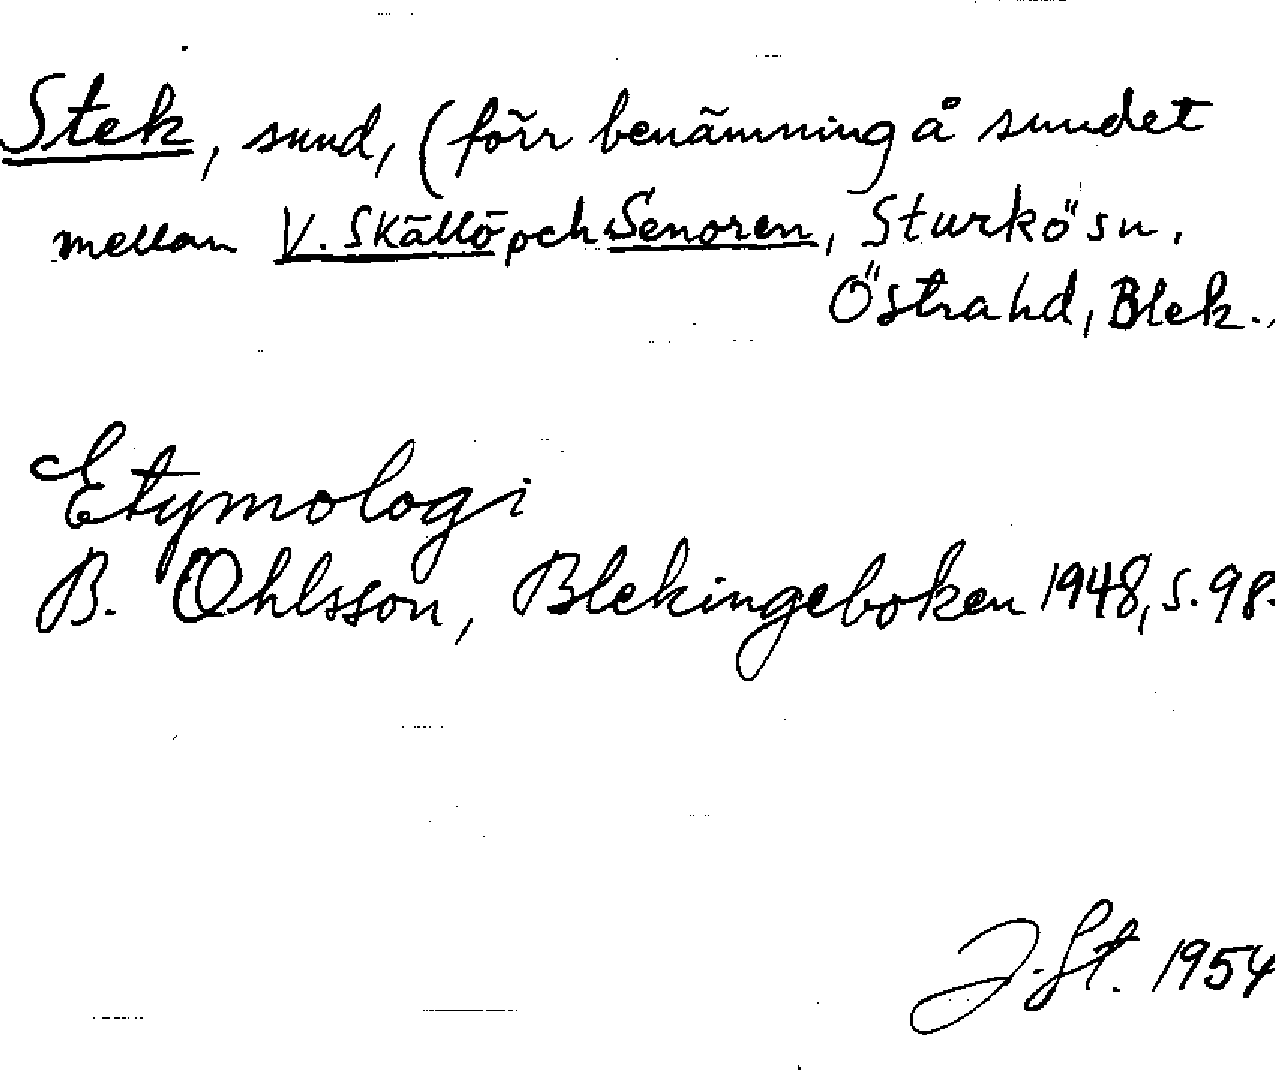 Stek, sund, (förr benämning å sundet
mellan V. Skällö och Senoren, Sturkö sn.
Östra hd, Blek..
Etymologi
B. Ohlsson, Blekingeboken 1948, s. 98.
J. St. 1954